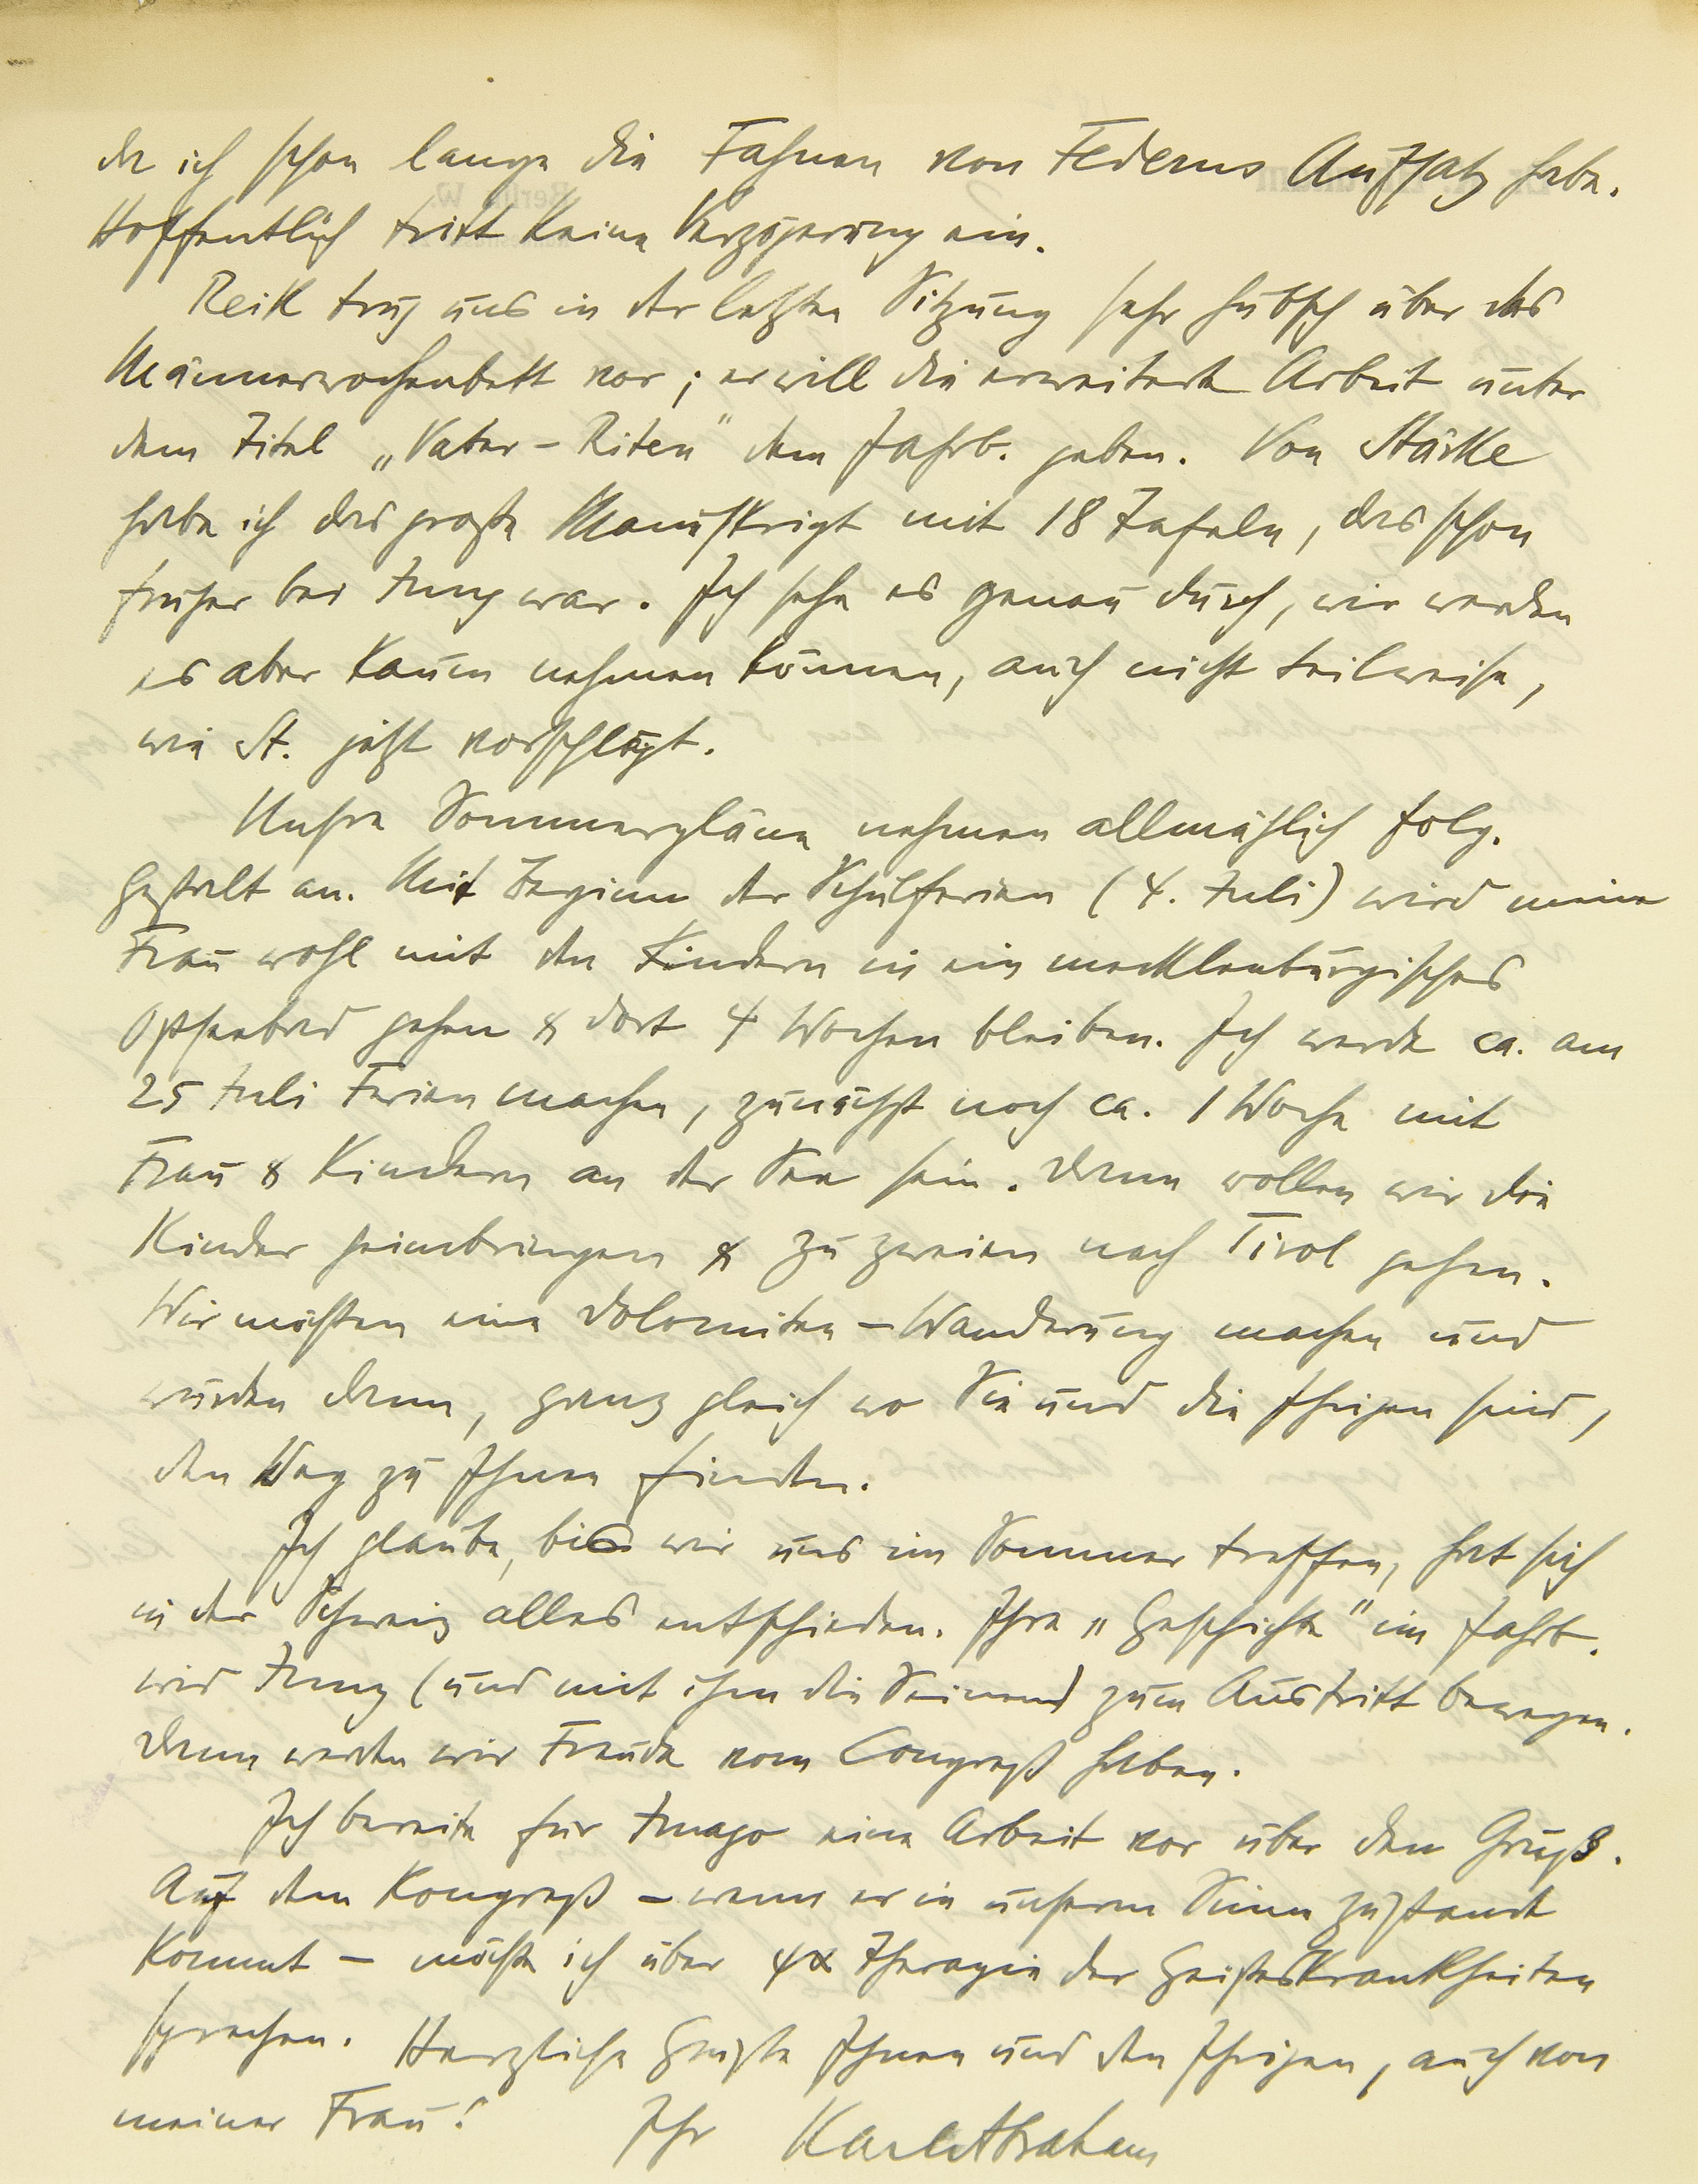 da ich schon lange die Fahnen von Federns Aufsatz habe.
Hoffentlich tritt keine Verzögerung ein.
Reik trug uns in der letzten Sitzung sehr hübsch über das
Männerwochenbett vor; er will die erweiterte Arbeit unter
dem Titel „Vater-Riten" dem Jahrb. geben. Von Stärcke
habe ich das große Manuskript mit 18 Tafeln, das schon
früher bei Jung war. Ich sehe es genau durch, wir werden
es aber kaum nehmen können, auch nicht teilweise,
wie St. jetzt vorschlägt.
Unsre Sommerpläne nehmen allmählich folg.
Gestalt an. Mit Beginn der Schulferien (4. Juli) wird meine
Frau wohl mit den Kindern in ein mecklenburgisches
Ostseebad gehen & dort 4 Wochen bleiben. Ich werde ca. am
25 Juli Ferien machen, zunächst noch ca. 1 Woche mit
Frau & Kindern an der See sein. Dann wollen wir die
Kinder heimbringen & zu zweien nach Tirol gehen.
Wir möchten eine Dolomiten-Wanderung machen und
würden dann, ganz gleich wo Sie und die Ihrigen sind,
den Weg zu Ihnen finden.
Ich glaube, bis wir uns im Sommer treffen, hat sich
in der Schweiz alles entschieden. Ihre „Geschichte" im Jahrb.
wird Jung (und mit ihm die Seinen) zum Austritt bewegen.
Dann werden wir Freude vom Congreß haben.
Ich bereite für Imago eine Arbeit vor über den Gruß.
Auf dem Kongreß – wenn er in unserm Sinn zustande
kommt – möchte ich über ψα Therapie der Geisteskrankheiten
sprechen. Herzliche Grüße Ihnen und den Ihrigen, auch von
meiner Frau!    Ihr Karl Abraham